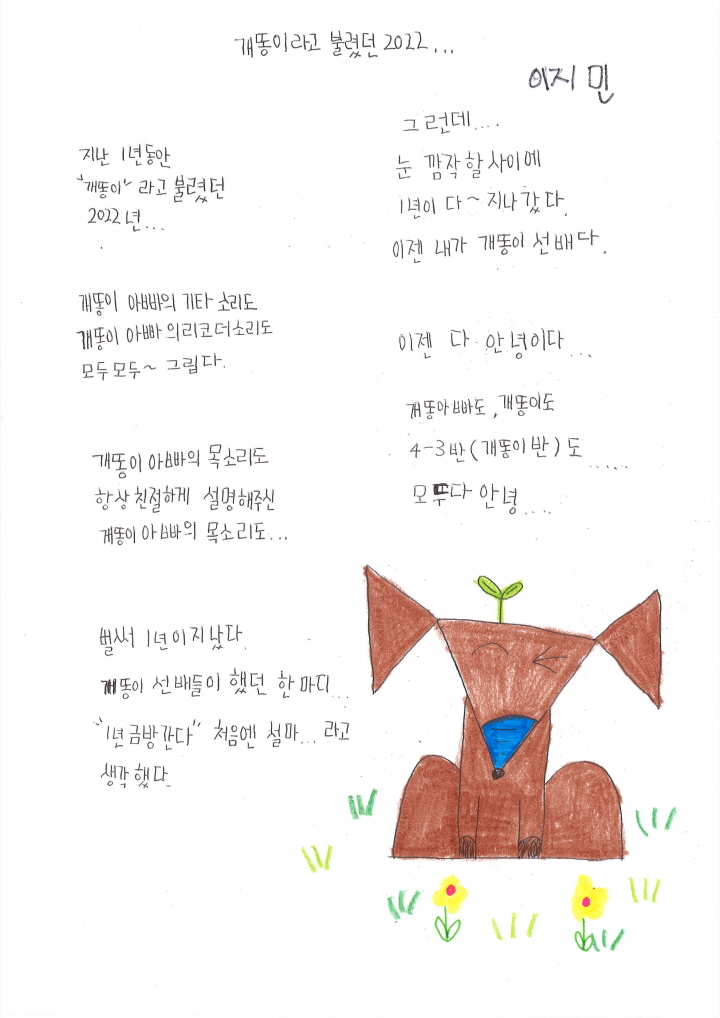 개똥이라고 불렸던 2022...
이지민
지난 1년동안
"개똥이" 라고 불렸던
2022년...
개똥이 아빠의 기타 소리도
개똥이 아빠의 리코더소리도
모두모두~ 그립다.
개똥이 아빠의 목소리도
항상 친절하게 설명해주신
개똥이 아빠의 목소리도...
벌써 1년이 지났다.
개똥이 선배들이 했던 한마디...
"1년 금방간다" 처음엔 설마... 라고
생각했다.
그런데....
눈 깜작할 사이에
1년이 다~ 지나갔다.
이젠 내가 개똥이 선배다.
이젠 다 안녕이다...
개똥아빠도, 개똥이도
4-3반(개똥이반)도.....
모두다 안녕....